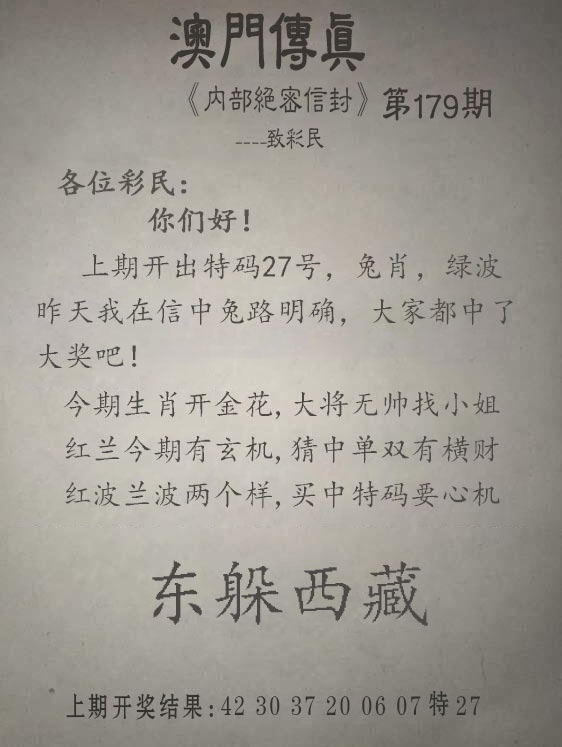 澳門傳眞
《内部絕密信封》第179期
----致彩民
各位彩民：
你们好！
上期开出特码27号，兔肖，绿波
昨天我在信中兔路明确，大家都中了
大奖吧！
今期生肖开金花,大将无帅找小姐
红兰今期有玄机,猜中单双有横财
红波兰波两个样,买中特码要心机
东躲西藏
上期开奖结果:42 30 37 20 06 07 特 27